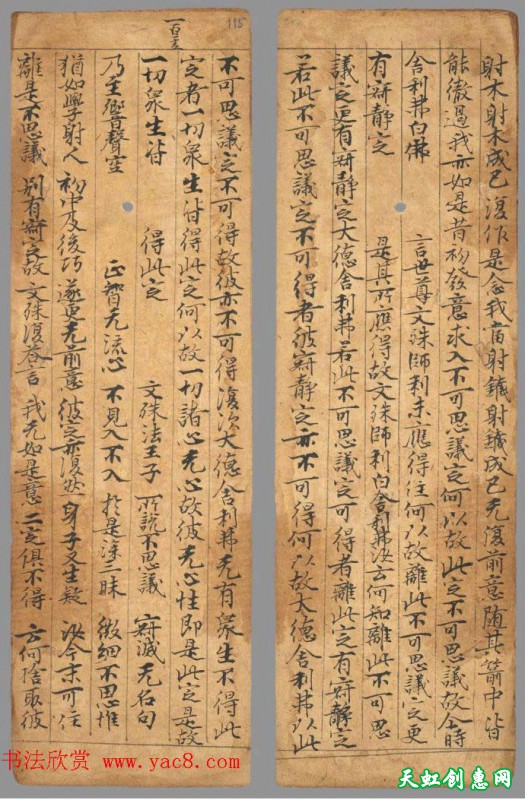 射木射木成已復作是念我當射鐵射鐵成已无復前意随其箭中皆
能徹過我亦如是昔初發意求入不可思議定何以故此定不可思議故今時
舍利弗白佛 言世尊文殊師利未應得住何以故離此不可思議定更
有寂靜定 是其所應得故文殊師利白舍利弗汝云何知離此不可思
議定更有寂靜定大德舍利弗若此不可思議定可得者離此定有寂靜定
若此不可思議定不可得者彼寂靜定亦不可得何以故大德舍利弗以此
115
不可思議定不可得故彼亦不可得復次大德舍利弗无有衆生不得此
定者一切衆生皆得此定何以故一切諸心无心故彼无心性即是此定是故
一切衆生皆 得此定 文殊法王子 所說不思議 寂滅无名句
乃至響聲空 正智无流心 不見入不入 於是深三昧 微細不思惟
猶如學射人 初中及後巧 遂更无前意 彼定亦復然 身子又生疑 汝今未可住
離是不思議 別有寂定故 文殊復答言 我无如是意 二定俱不得 云何捨取彼
书法欣赏 www.yac8.com
天虹创惠网